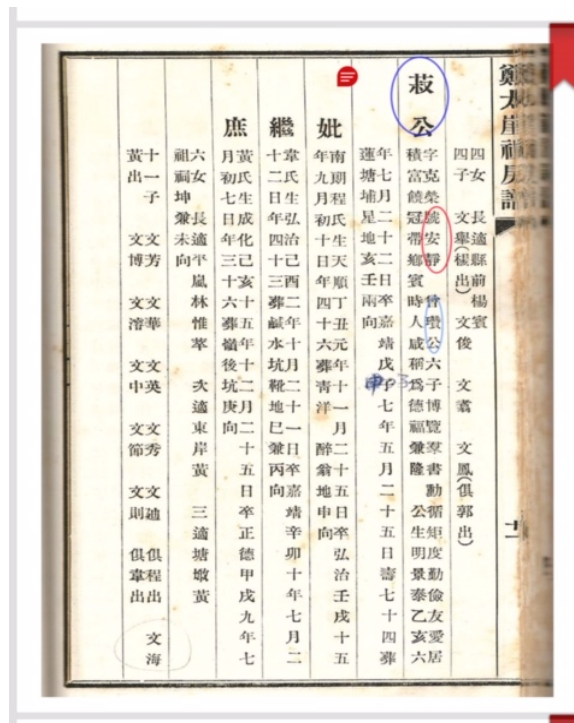 鄭大崖祠房譜
四女 長適縣前楊賓
四子 文舉(楊出) 文俊 文翥 文鳳(俱郭出)
菽公
字克榮號安靜 瓚公六子博覽羣書動循矩度勤儉友愛居
積富饒冠帶鄉賓時人咸稱爲德福兼隆 公生明景泰乙亥六
年七月二十二日卒嘉靖戊子七年五月二十五日壽七十四葬
蓮塘埔星地亥壬兩向
妣
南朗程氏生天順丁丑元年十一月二十五日卒弘治壬戌十五
年九月初十日年四十六葬青洋 醉翁地申向
繼
韋氏生弘治己酉二年十月二十一日卒嘉靖辛卯十年七月二
十二日年四十三葬鹹水坑靴地巳兼丙向
庶
黃氏生成化己亥十五年十二月二十五日卒正德甲戌九年七
月初七日年三十六葬嶺後坑庚向
六女 長適平嵐林惟莘 次適東岸黃 三適塘敢黃
祖祠坤兼未向
十一子 文芳 文華 文英 文秀 文廸 俱程出 文海
黃出 文博 文濬 文中 文節 文則 俱韋出